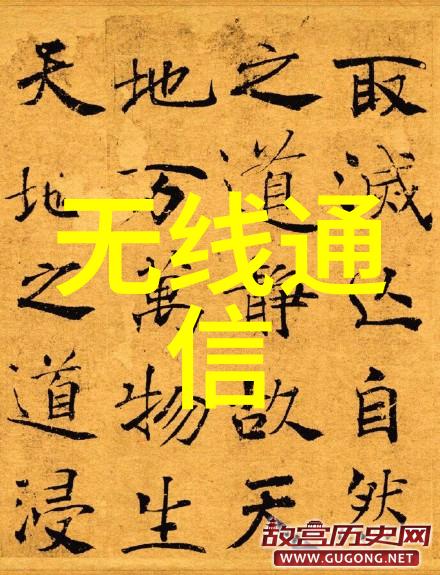 取滅亡自然
之道静故天
地万萬物生
天地之道浸
无线通
信
故宫历史网
WWW.GUGONG.NET